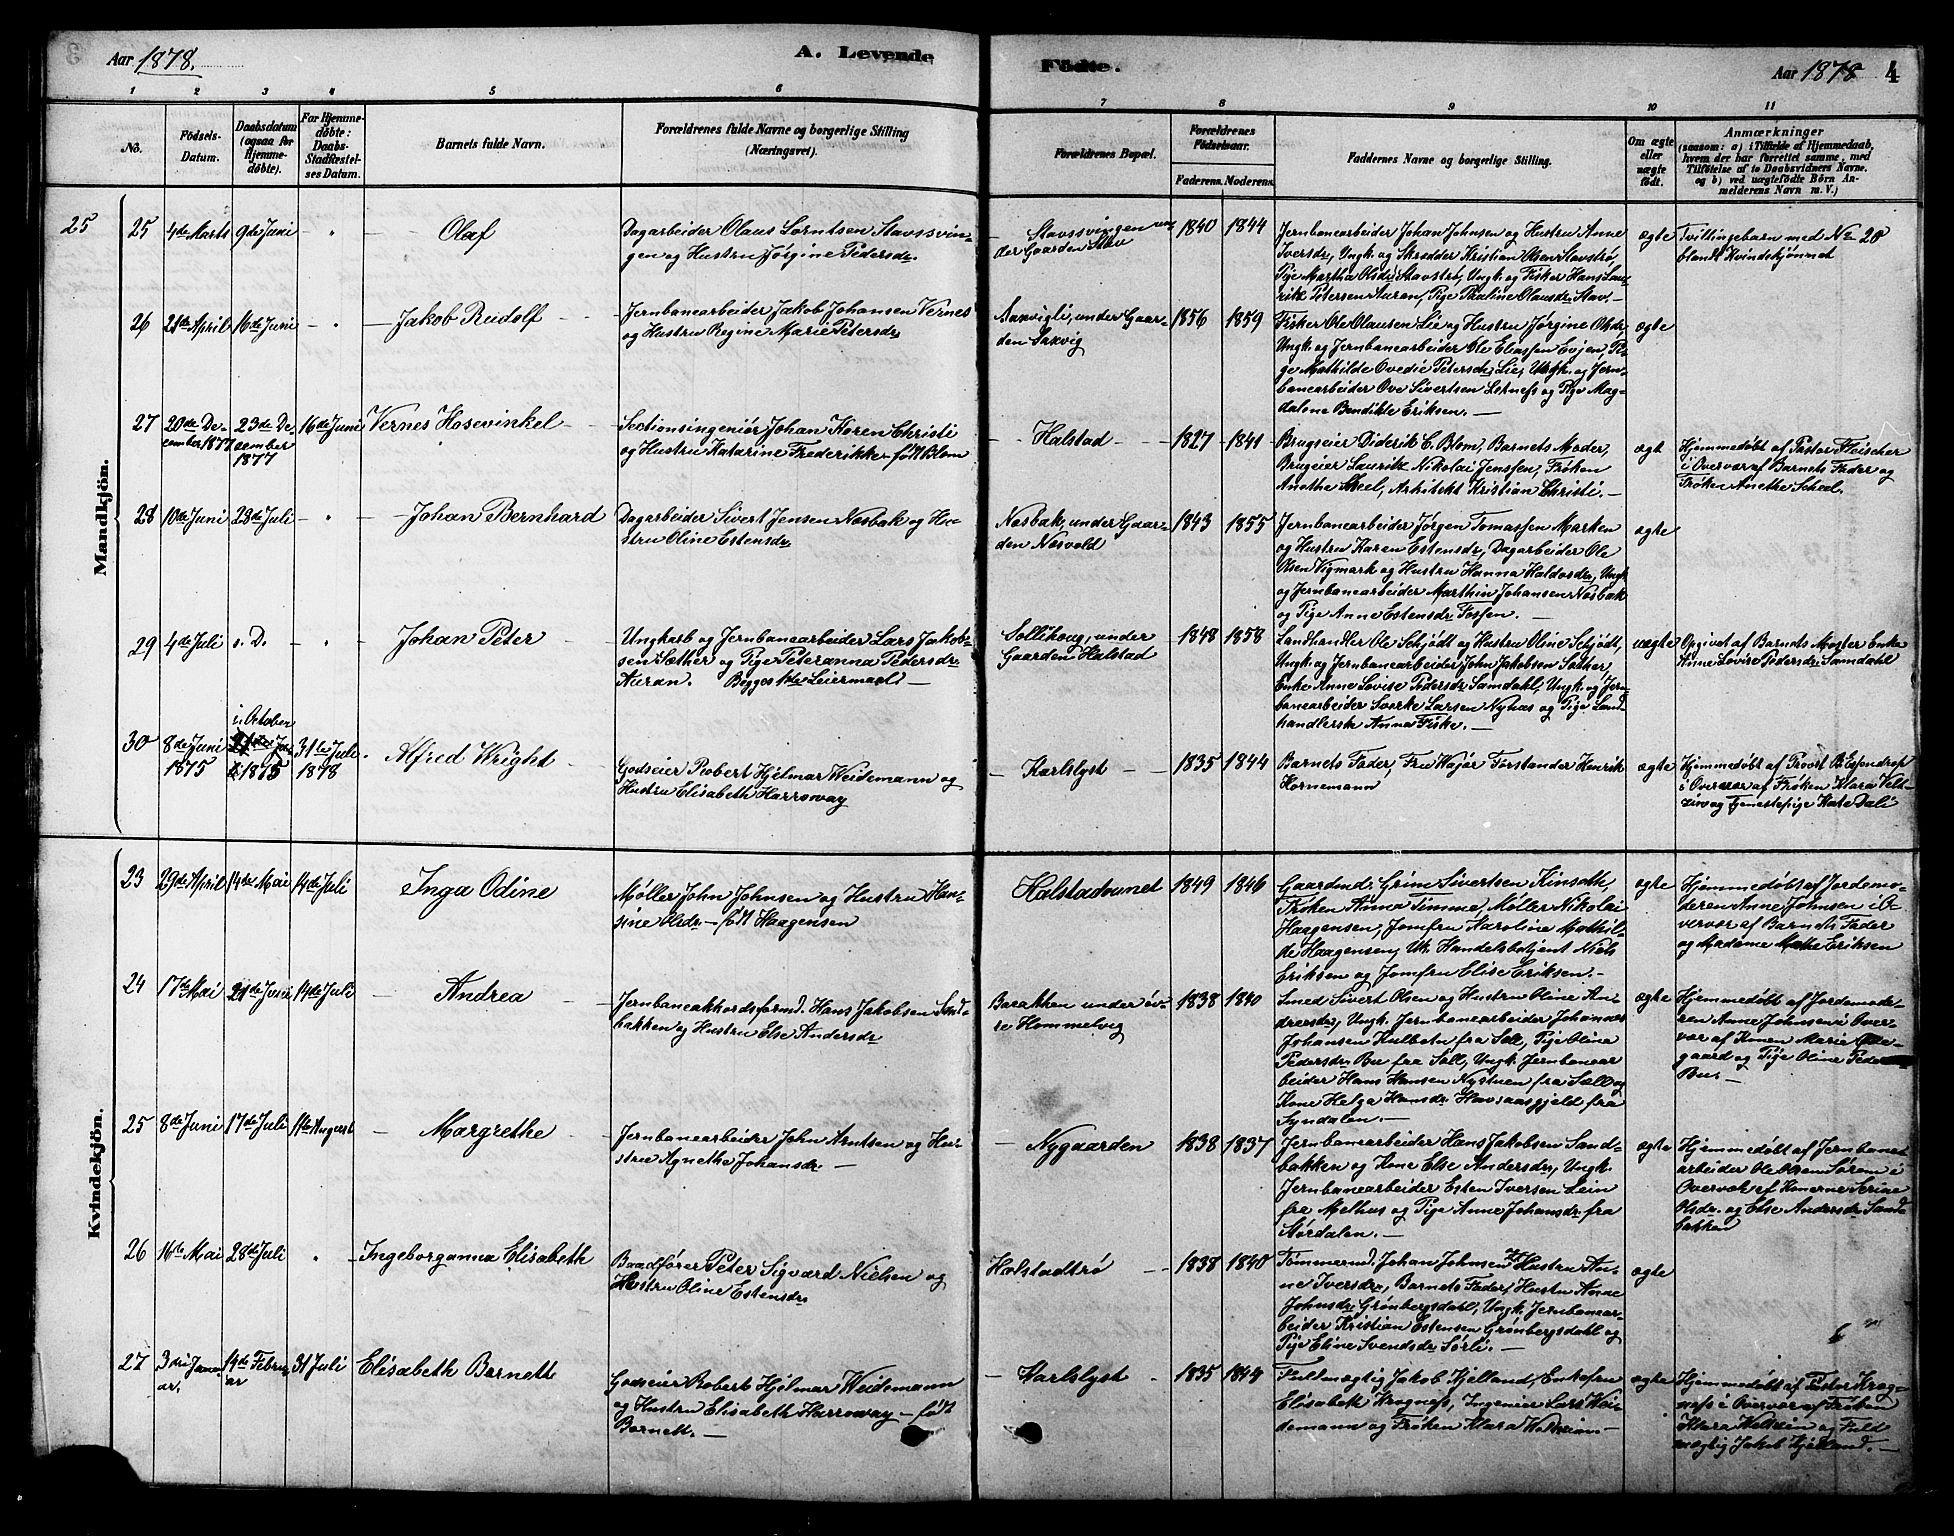 Aar 1878.
A. Levende
Fødte.
Aar 1878
4
1 2 3 4 5 6 7 8 9 10 11
No.
Fødsels-
Datum.
Daabsdatum
(ogsaa for
Hjemme-
døbte).
For Hjemme-
døbte:
Daabs-
Stadfæstel-
ses Datum.
Barnets fulde Navn.
Forældrenes fulde Navne og borgerlige Stilling
(Næringsvei).
Forældrenes Bopæl.
Forældrenes
Fødselsaar.
Faderens. Moderens.
Faddernes Navne og borgerlige Stilling.
Om ægte
eller
uægte
født.
Anmærkninger
(saasom: a) i Tilfælde af Hjemmedaab,
hvem der har forrettet samme, med
Tilføielse af to Daabsvidners Navne,
og b) ved uægtefødte Børn An-
melderens Navn m. V.)
Mandkjön.
25
25
4de Marts
9de Juni
Olaf
Dagarbeider Olaus Lorntsen Stavssvin-
gen og Hustru Jørgine Pedersdr.
Stavssvingen un-
der Gaarden Stav
1840
1844
Jernbanearbeider Johan Johnsen og Hustru Anne
Iversdr, Ungk. og Skrædder Kristian Olsen Stavstrø,
Pige Martha Olsdr. Stavstrø, Ungk. og Fisker Hans Lau-
ritz Petersen Auran, Pige Pauline Olausdr. Stav.
ægte
Tvillingebarn med No 28
blandt Kvindekjønnet
26
28de April
16de Juni
Jakob Rudolf
Jernbanearbeider Jakob Johansen Vernes
og Hustru Regine Marie Petersdr
Saxvigli, under Gaar-
den Saxvig
1856
1859
Fisker Ole Olausen Lie og Hustru Jørgine Olsdr,
Ungk. og Jernbanearbeider Ole Eliassen Evjen, Pi-
ge Mathilde Ovedie Petersdr Lie, Ungk. og Jern-
banearbeider Ove Sivertsen Lerness og Pige Mag-
dalena Bendikte Eriksen.
ægte
27
20de De-
cember 1877
23de De
cember
1877
16de Juni
Vernes Hosevinkel
Sectionsingeniør Johan Koren Christi
og Hustru Katarine Frederikke født Blom
Halstad
1827
1841
Brugseier Diderik C. Blom, Barnets Moder,
Brugeier Lauritz Nikolai Jenssen, Frøken
Anethe Scheel, Arkitekt Kristian Christi.
ægt
Hjemmedøbt af Pastor Fleischer
i Overvær af Barnets Fader og
Frøken Anethe Scheel.
28
10de Juni
28de Juli
Johan Bernhard
Dagarbeider Sivert Jensen Næsbak og Hu-
stru Oline Estensdr
Næsbak, under Gaar-
den Næsvold
1843
1855
Jernbanearbeider Jørgen Tomassen Marken
og Hustru Karen Estensdr, Dagarbeider Ole
Olsen Vigmark og Hustru Hanna Haldosdr, Ungk
og Jernbanearbeider Marthin Johansen Næsbak
og Pige Anne Estensdr Fossen.
ægte
29
4de Juli
s. D.
Johan Peter
Ungkarl og Jernbanearbeider Lars Jakob-
sen Sæther og Pige Peteranna Pedersdr
Auran. Begges 1ste Leiermaal.
Sollihoug, under
Gaarden Halstad
1848
1858
Landhandler Ole Schjødt og Hustru Oline Schjødt,
Ungk. og Jernbanearbeider John Jakobsen Sæther,
Enke Anne Lovise Pedersdr Samdahl, Ungk. og Jern-
banearbeider Sverke Larsen Nyhus og Pige Land-
handlersk Anna Fiske.
uægte
Opgivet af Barnets Moster Enke
Anne Lovise Pedersdr Samdahl
30
8de Juni
1875
i October
1875
31te Juli
1878
Alfred Wright
Godseier Robert Hjelmar Weidemann og
Hustru Elisabeth Harroway
Karlslyst
1835
1844
Barnets Fader, Fru Forstander Henrik
Hornemann
ægte
Hjemmedøbt af Provst B. Esendrop
i Overvær af Frøken Klara
og Tjenestepige Kate Dali
Kvindekjön.
23
29de April
14de Mai
14de Juli
Inga Odine
Møller John Johnsen og Hustru Han-
sine Olsdr født Haagensen
Halstadvunet
1849
1846
Gaardmd. Grim Sivertsen Kinsæth,
Frøken Anna Timme, Møller Nikolai
Haagensen, Jomfru Karoline Mathil-
de Haagensen, Uk. Handelsbetjent Niels
Eriksen og Jomfru Elise Eriksen.
ægte
Hjemmedøbt af Jordemo-
deren Anne Johnsen i O-
vervær af Barnets Fader
og Madame Eriksen
24
17de Mai
21de Juni
14de Juli
Andrea
Jernbaneakkordsformd. Hans Jakobsen Sand-
bakken og Hustru Else Andersdr
Barakken under øv-
re Hommelvig
1838
1840
Smed Sivert Olsen og Hustru Oline An-
dreesdr, Ungk. Jernbanearbeider Johannes
Johansen Kulbotn fra Soll, Pige Olina
Pedersdr. Bu fra Soll, Ungk. Jernbanear
beider Hans Hansen Nystuen fra Soll og
Kone Helga Hansdr Havsaasgjeld fra
Syndalen.
ægte
Hjemmedøbt af Jordemode-
ren Anne Johnsen i Over-
vær af Konen Marie Øde-
gaard og Pige Oline Peders
Bu.
25
8de Juni
17de Juli
11te August
Margrethe
Jernbanearbeider John Arntsen og Hu-
stru Agnethe Johansdr.
Nygaarden
1838
1837
Jernbanearbeider Hans Jakobsen Sand-
bakken og Kone Else Andersdr, Ungk.
Jernbanearbeider Esten Iversen Lein
fra Melhus og Pige Anne Johansdr fra
Størdalen.
ægte
Hjemmedøbt af Jernbane
arbeider Ole Olsen Sørem i
Overvær af Konerne Serine
Olsdr. og Else Andersdr Sand-
bakken
26
16de Mai
28de Juli
Ingeborganna Elisabeth
Baadfører Peter Sigvard Nielsen og
Hustru Oline Estensdr
Halstadtrø
1838
1840
Tømmermd. Johan Johnsen og Hustru An-
ne Iversdr, Barnets Fader, Hustru Anne
Johnsdr Grønbergsdahl, Ungk. Jernbanear-
beider Kristian Estensen Grønbergsdahl og
Pige Eline Svendsdr Sørli.
ægte
27
3die Janu-
ar.
14de Febru-
ar
31 Juli
Elisabeth Barnett
Godseier Robert Hjelmar Weidemann
og Hustru Elisabeth Harroway født
Barnett.
Karlslyst
1835
1844
Fuldmægtig Jakob Kjelland, Enkefru
Elisabeth Krogness, Ingeniør Lars Wei-
demann og Frøken Klara
ægte
Hjemmedøbt af Pastor Krog-
ness i Overvær af Frøken
Klara og Fuld
mægtig Jakob Kjelland.